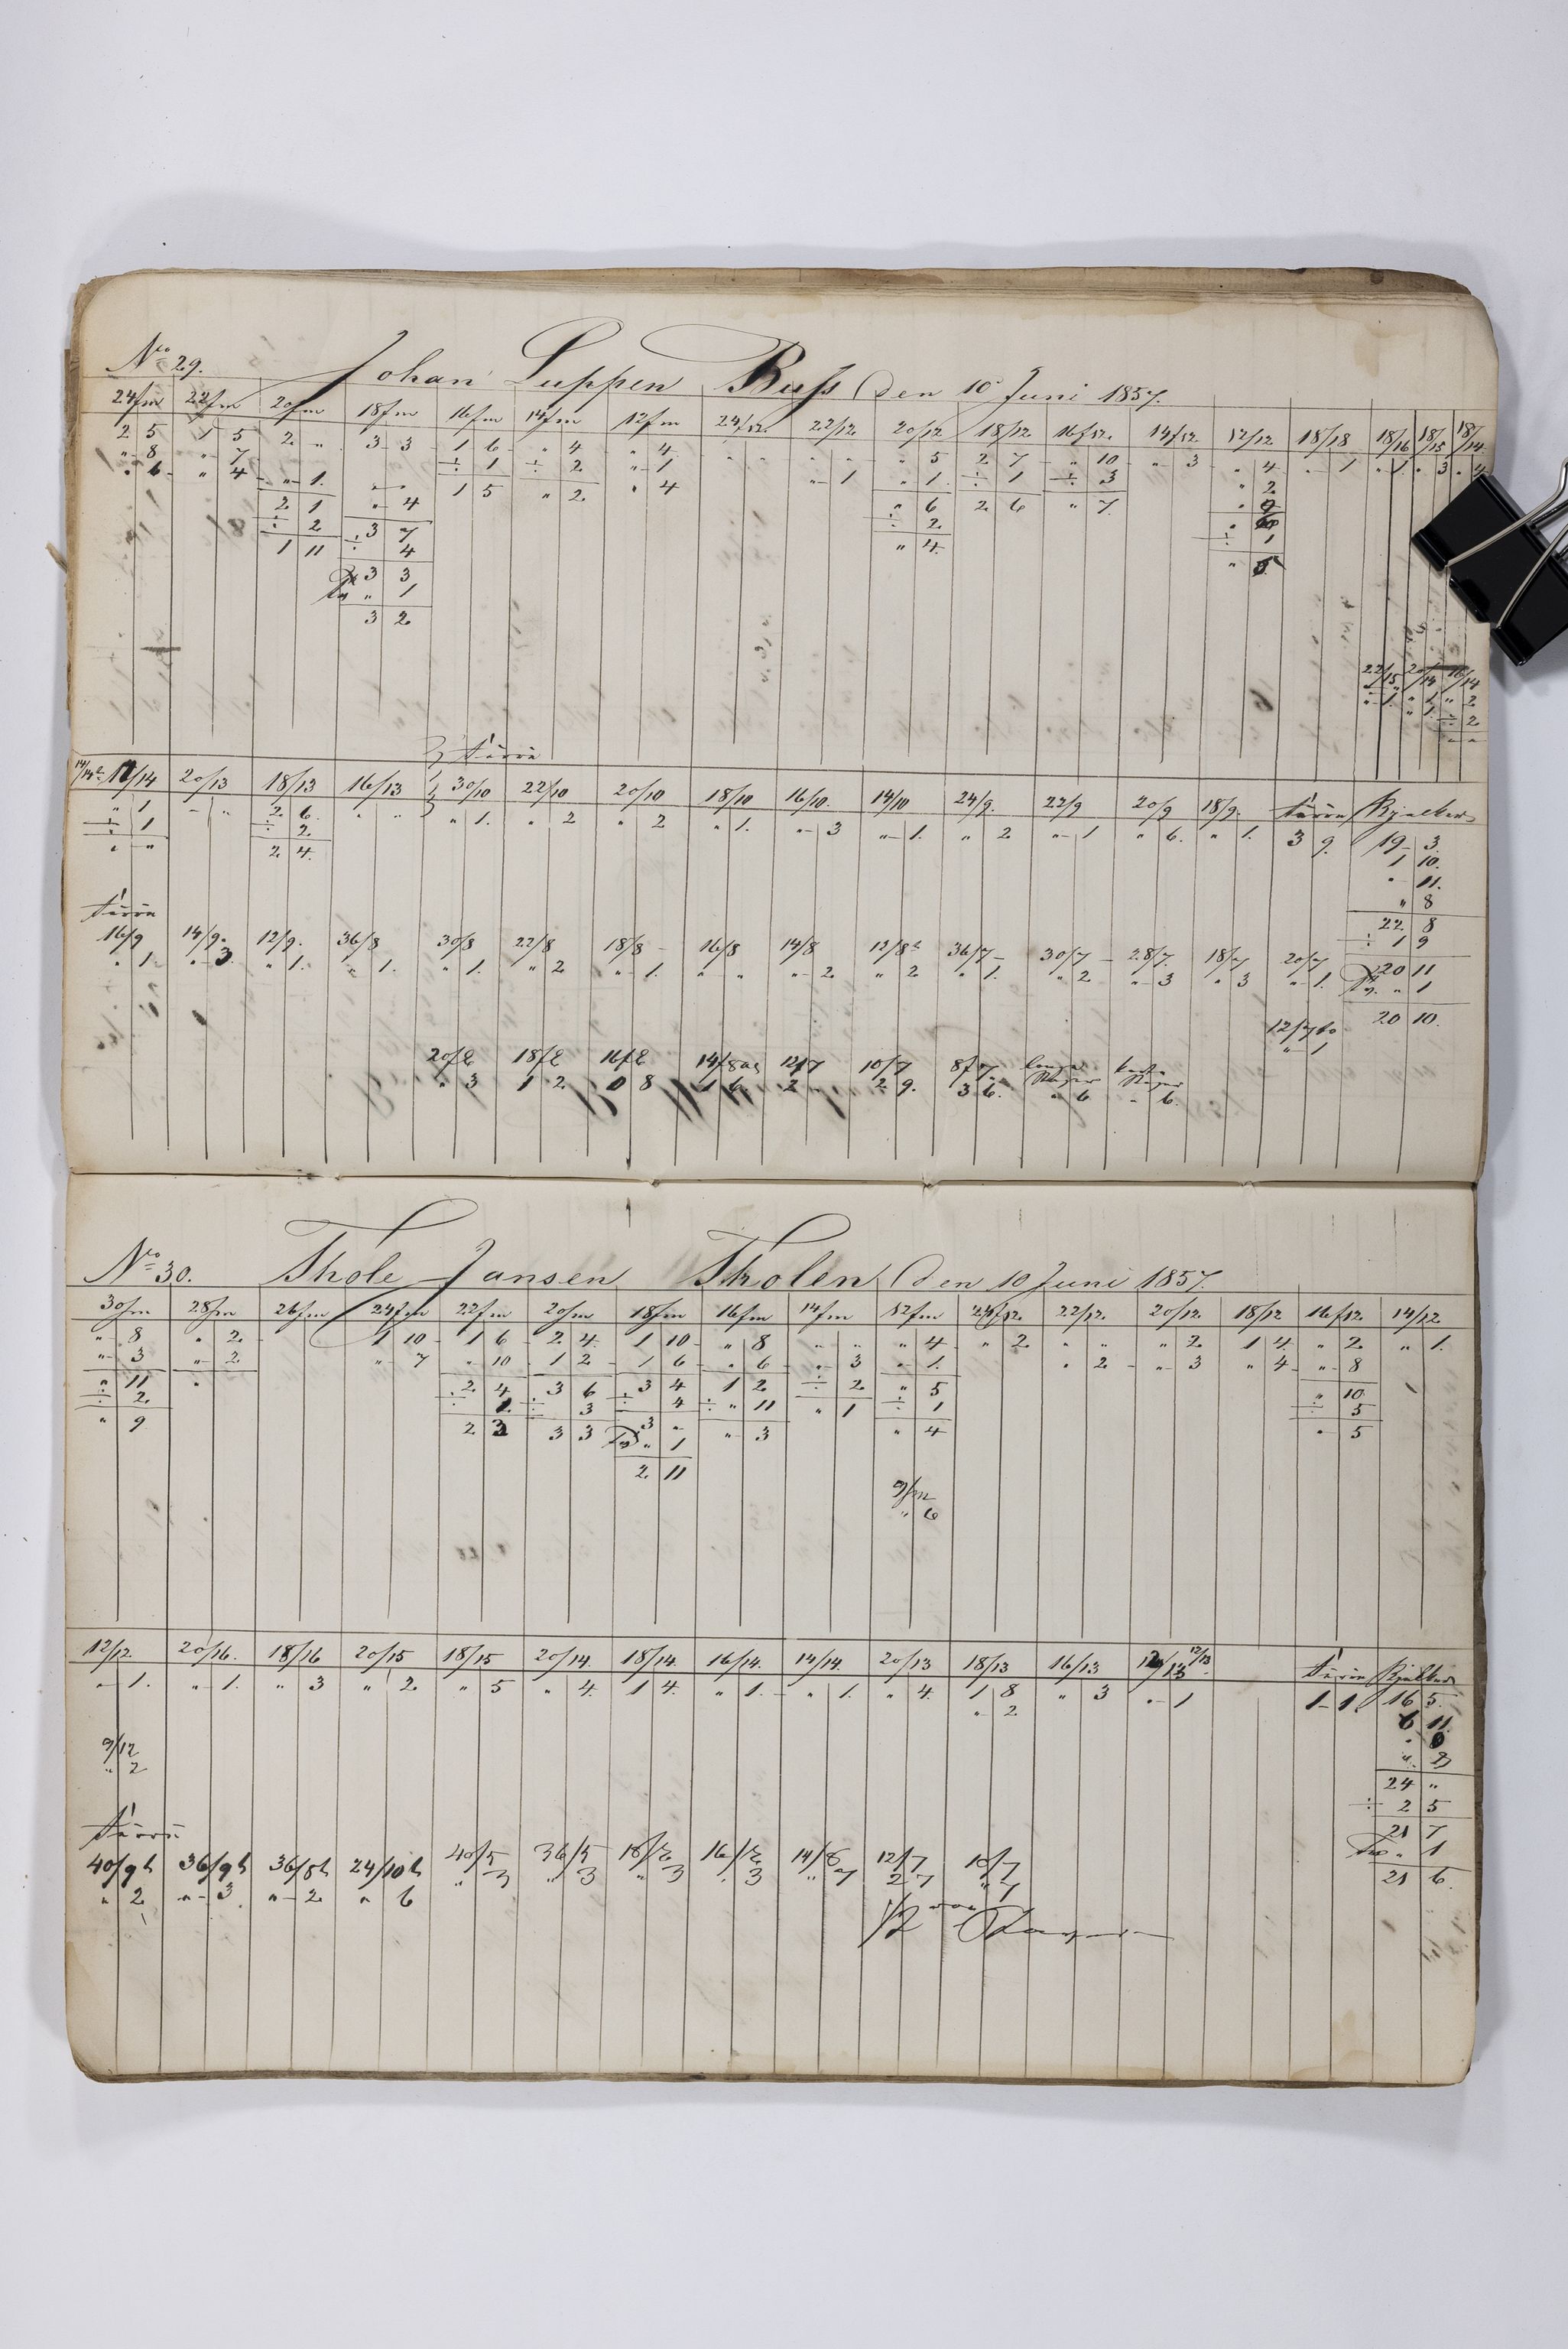 No 29. Johan Luppen Buss den 10 Juni 1857.
24/m 22/m 20/m 18/m 16/m 14/m 12/m 24/12. 22/12 20/12 18/12 16/12. 14/12 12/12 18/18 18/16 18/15 18/14
2 5 1 5 2 " 3 3 1 6 " 4 " 4 " " " " " 5 2 7 " 10 " 3 " 4 " 1 " 1 " 3 " 4
" 8 " 7 ÷ 1 ÷ 2 " 1 " 1 " 1 ÷ 1 ÷ 3 " 2
" 6 " 4 " 1. " " 1 5 " 2 " 4 " 6 2 6 " 7
2 1 " 4 ÷ 2
÷ 2 3 7 " 4 ÷ 1
1 11 ÷ 4 " 5
3 3
" 1
3 2
22/15 20/14 16/14
" 1 " 1 " 2
" 1 ÷ 2
" "
türrie
14/14 20/13 18/13 16/13 30/10 22/10 20/10 18/10 16/10. 14/10 24/9. 22/9 20/9 18/9. türrie Bjelker
" 1 " " 2 6 " " " 1. " 2 " 2 " 1. " 3 " 1. " 2 " 1 " 6. " 1. 3 9 19 3.
÷ 1 ÷ 2 1 10.
" " 2 4. " 11.
" 8
türrie 22 8
16/9 14/9. 12/9. 36/8 30/8 22/8 18/8 16/8 14/8 12/8 36/7 30/7 28/7. 18/7 20/7 ÷ 1 9
" 1. " 3 " 1. " 1. " 1. " 2 " 1. " " " 2 " 2 " 1. " 2 " 3 " 3 " 1. 20 11
" 1
12/7 20 10.
" 1
20/8 18/8 16/8 14/8 12/7 10/7 8/7
" 3 1 2 0 8 1 6 2 " 2 9. 3 6. " 6 " 6.
No 30. Thole Jansen Tholen den 10 Juni 1857.
30/m 28/m 26/m 24/m 22/m 20/m 18/m 16/m 14/m 12/m 24/12. 22/12. 20/12. 18/12 16/12. 14/12
" 8 " 2. 1 10 1 6 2 4. 1 10 " 8 " " " 4 " 2 " " " 2 1 4. " 2 " 1.
" 3 " 2 " 7 " 10 1 2 1 6 " 6 " 3 " 1. " 2 " 3 " 4 " 8
" 11 2 4 3 6 3 4 1 2 ÷ 2 " 5 " 10
÷ 2. ÷ 1 ÷ 3 ÷ 4 ÷ " 11 " 1 ÷ 1 ÷ 5
" 9 2 3 3 3 3 " " 3 " 4 " 5
" 1
2 11
9/m
" 6
12/12. 20/16. 18/16 20/15 18/15 20/14. 18/14. 16/14. 14/14. 20/13 18/13 16/13 12/13 türrie Bjelker
" 1. " 1. " 3 " 2. " 5 " 4. 1 4. " 1. " 1. " 4. 1 8 " 3 " 1 1 1. 16 5.
" 2 6 11.
9/12
" 2
24 "
÷ 2 5
türrie 21 7
40/9h 36/9h 36/8h 24/10h 40/5 36/5 18/8 16/8 14/8 12/7 10/7 " 1
" 2 " 3 " 2 " 6 " 3 " 3 " 3 " 3 " 7 2 7 " 1 21 6.